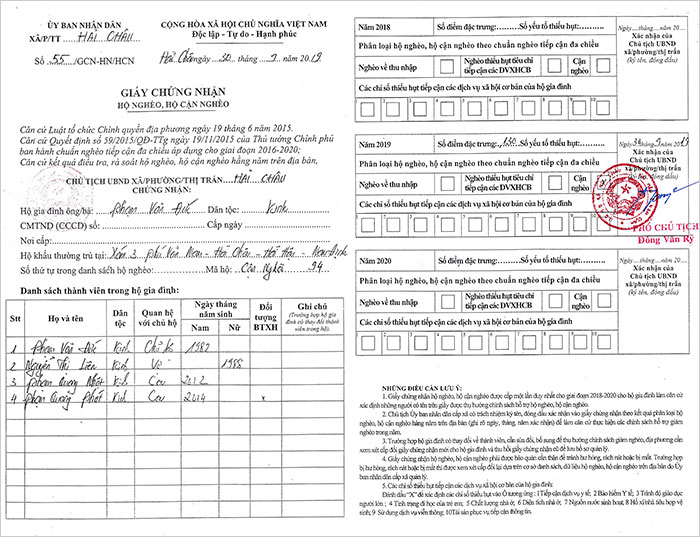 ỦY BAN NHÂN DÂN
XÃ/P/TT HẢI CHÂU
Số 55 /GCN-HN/HCN
CỘNG HÒA XÃ HỘI CHỦ NGHĨA VIỆT NAM
Độc lập - Tự do - Hạnh phúc
Hải Châu ngày 30 tháng 9 năm 2019
GIẤY CHỨNG NHẬN
HỘ NGHÈO, HỘ CẬN NGHÈO
Căn cứ Luật tổ chức Chính quyền địa phương ngày 19 tháng 6 năm 2015.
Căn cứ Quyết định số 59/2015/QĐ-TTg ngày 19/11/2015 của Thủ tướng Chính phủ
ban hành chuẩn nghèo tiếp cận đa chiều áp dụng cho giai đoạn 2016-2020;
Căn cứ kết quả điều tra, rà soát hộ nghèo, hộ cận nghèo hằng năm trên địa bàn,
CHỦ TỊCH UBND XÃ/PHƯỜNG/THỊ TRẤN HẢI CHÂU
CHỨNG NHẬN:
Hộ gia đình ông/bà: Phạm Văn Đức Dân tộc: Kinh
CMTND (CCCD) số: Cấp ngày
Nơi cấp:
Hộ khẩu thường trú tại: Xóm 3 Phú Văn Nam - Hải Châu - Hải Hậu - Nam Định
Số thứ tự trong danh sách hộ nghèo: Mã hộ: Cận Nghèo 94
Danh sách thành viên trong hộ gia đình:
Stt Họ và tên Dân tộc Quan hệ với chủ hộ Ngày tháng năm sinh Nam Nữ Đối tượng BTXH Ghi chú (Trường hợp hộ gia đình có thay đổi thành viên trong hộ)
1 Phạm Văn Đức Kinh Chủ hộ 1982
2 Nguyễn Thị Liên Kinh Vợ 1988
3 Phạm Quang Nhất Kinh Con 2012
4 Phạm Quang Phát Kinh Con 2014 x
Năm 2018 Số điểm đặc trưng: Số yếu tố thiếu hụt:
Phân loại hộ nghèo, hộ cận nghèo theo chuẩn nghèo tiếp cận đa chiều
Nghèo về thu nhập Nghèo thiếu hụt tiếp cận các DVXHCB Cận nghèo
Các chỉ số thiếu hụt tiếp cận các dịch vụ xã hội cơ bản của hộ gia đình
1 2 3 4 5 6 7 8 9 10
Ngày tháng năm 20
Xác nhận của
Chủ tịch UBND
xã/phường/thị trấn
(ký tên, đóng dấu)
Năm 2019 Số điểm đặc trưng: 130 Số yếu tố thiếu hụt:
Phân loại hộ nghèo, hộ cận nghèo theo chuẩn nghèo tiếp cận đa chiều
Nghèo về thu nhập Nghèo thiếu hụt tiếp cận các DVXHCB Cận nghèo
Các chỉ số thiếu hụt tiếp cận các dịch vụ xã hội cơ bản của hộ gia đình
1 2 3 4 5 6 7 8 9 10
Xác nhận của
Chủ tịch UBND
xã/phường/thị trấn
(ký tên, đóng dấu)
PHÓ CHỦ TỊCH
Đồng Văn Kỷ
Năm 2020 Số điểm đặc trưng: Số yếu tố thiếu hụt:
Phân loại hộ nghèo, hộ cận nghèo theo chuẩn nghèo tiếp cận đa chiều
Nghèo về thu nhập Nghèo thiếu hụt tiếp cận các DVXHCB Cận nghèo
Các chỉ số thiếu hụt tiếp cận các dịch vụ xã hội cơ bản của hộ gia đình
1 2 3 4 5 6 7 8 9 10
Ngày tháng năm 20
Xác nhận của
Chủ tịch UBND
xã/phường/thị trấn
(ký tên, đóng dấu)
NHỮNG ĐIỀU CẦN LƯU Ý:
1. Giấy chứng nhận hộ nghèo, hộ cận nghèo được cấp một lần duy nhất cho giai đoạn 2018-2020 cho hộ gia đình làm căn cứ
xác định những người có tên trên giấy được thụ hưởng chính sách hỗ trợ hộ nghèo, hộ cận nghèo.
2. Chủ tịch Ủy ban nhân dân cấp xã có trách nhiệm ký tên, đóng dấu xác nhận vào giấy chứng nhận theo kết quả phân loại hộ
nghèo, hộ cận nghèo hàng năm trên địa bàn (ghi rõ ngày, tháng, năm xác nhận) để làm căn cứ thực hiện các chính sách hỗ trợ giảm
nghèo trong năm.
3. Trường hợp hộ gia đình có thay đổi về thành viên, cần sửa đổi, bổ sung để thụ hưởng chính sách giảm nghèo, địa phương cần
xem xét cấp đổi giấy chứng nhận mới cho hộ gia đình và thu hồi giấy chứng nhận cũ để lưu hồ sơ quản lý.
4. Giấy chứng nhận hộ nghèo, hộ cận nghèo phải được bảo quản cẩn thận để tránh hư hỏng, rách nát hoặc bị mất. Trường hợp
bị hư hỏng, rách nát hoặc bị mất thì được xem xét cấp đổi lại trên cơ sở danh sách, dữ liệu hộ nghèo, hộ cận nghèo trên địa bàn do Ủy ban
nhân dân cấp xã quản lý.
5. Các chỉ số thiếu hụt tiếp cận các dịch vụ xã hội cơ bản của hộ gia đình:
Đánh dấu "X" để xác định các chỉ số thiếu hụt vào Ô tương ứng : 1 Tiếp cận dịch vụ y tế; 2 Bảo hiểm Y tế; 3 Trình độ giáo dục
người lớn ; 4 Tình trạng đi học của trẻ em; 5 Chất lượng nhà ở; 6 Diện tích nhà ở; 7 Nguồn nước sinh hoạt; 8 Hố xí/nhà tiêu hợp vệ
sinh; 9 Sử dụng dịch vụ viễn thông; 10 Tài sản phục vụ tiếp cận thông tin.